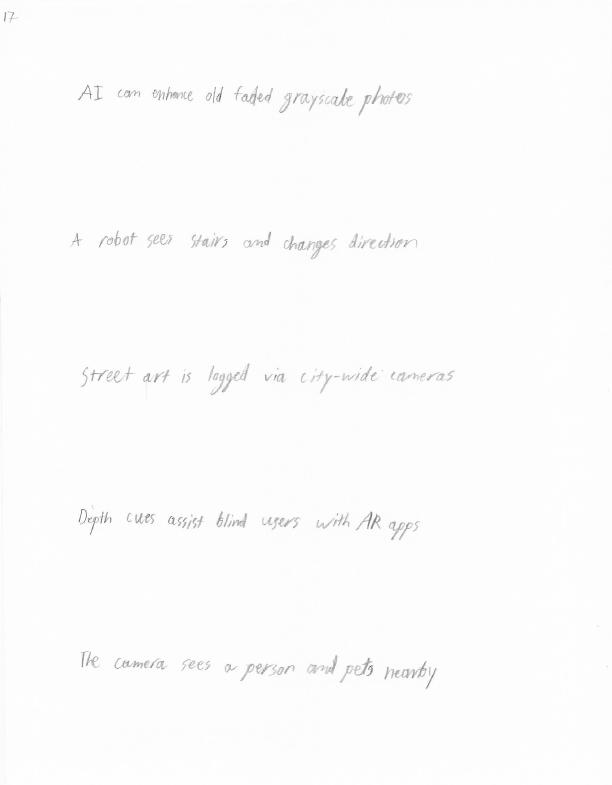 17
AI can enhance old faded grayscale photos
A robot sees stairs and changes direction
Street art is logged via city-wide cameras
Depth cues assist blind users with AR apps
The camera sees a person and pets nearby